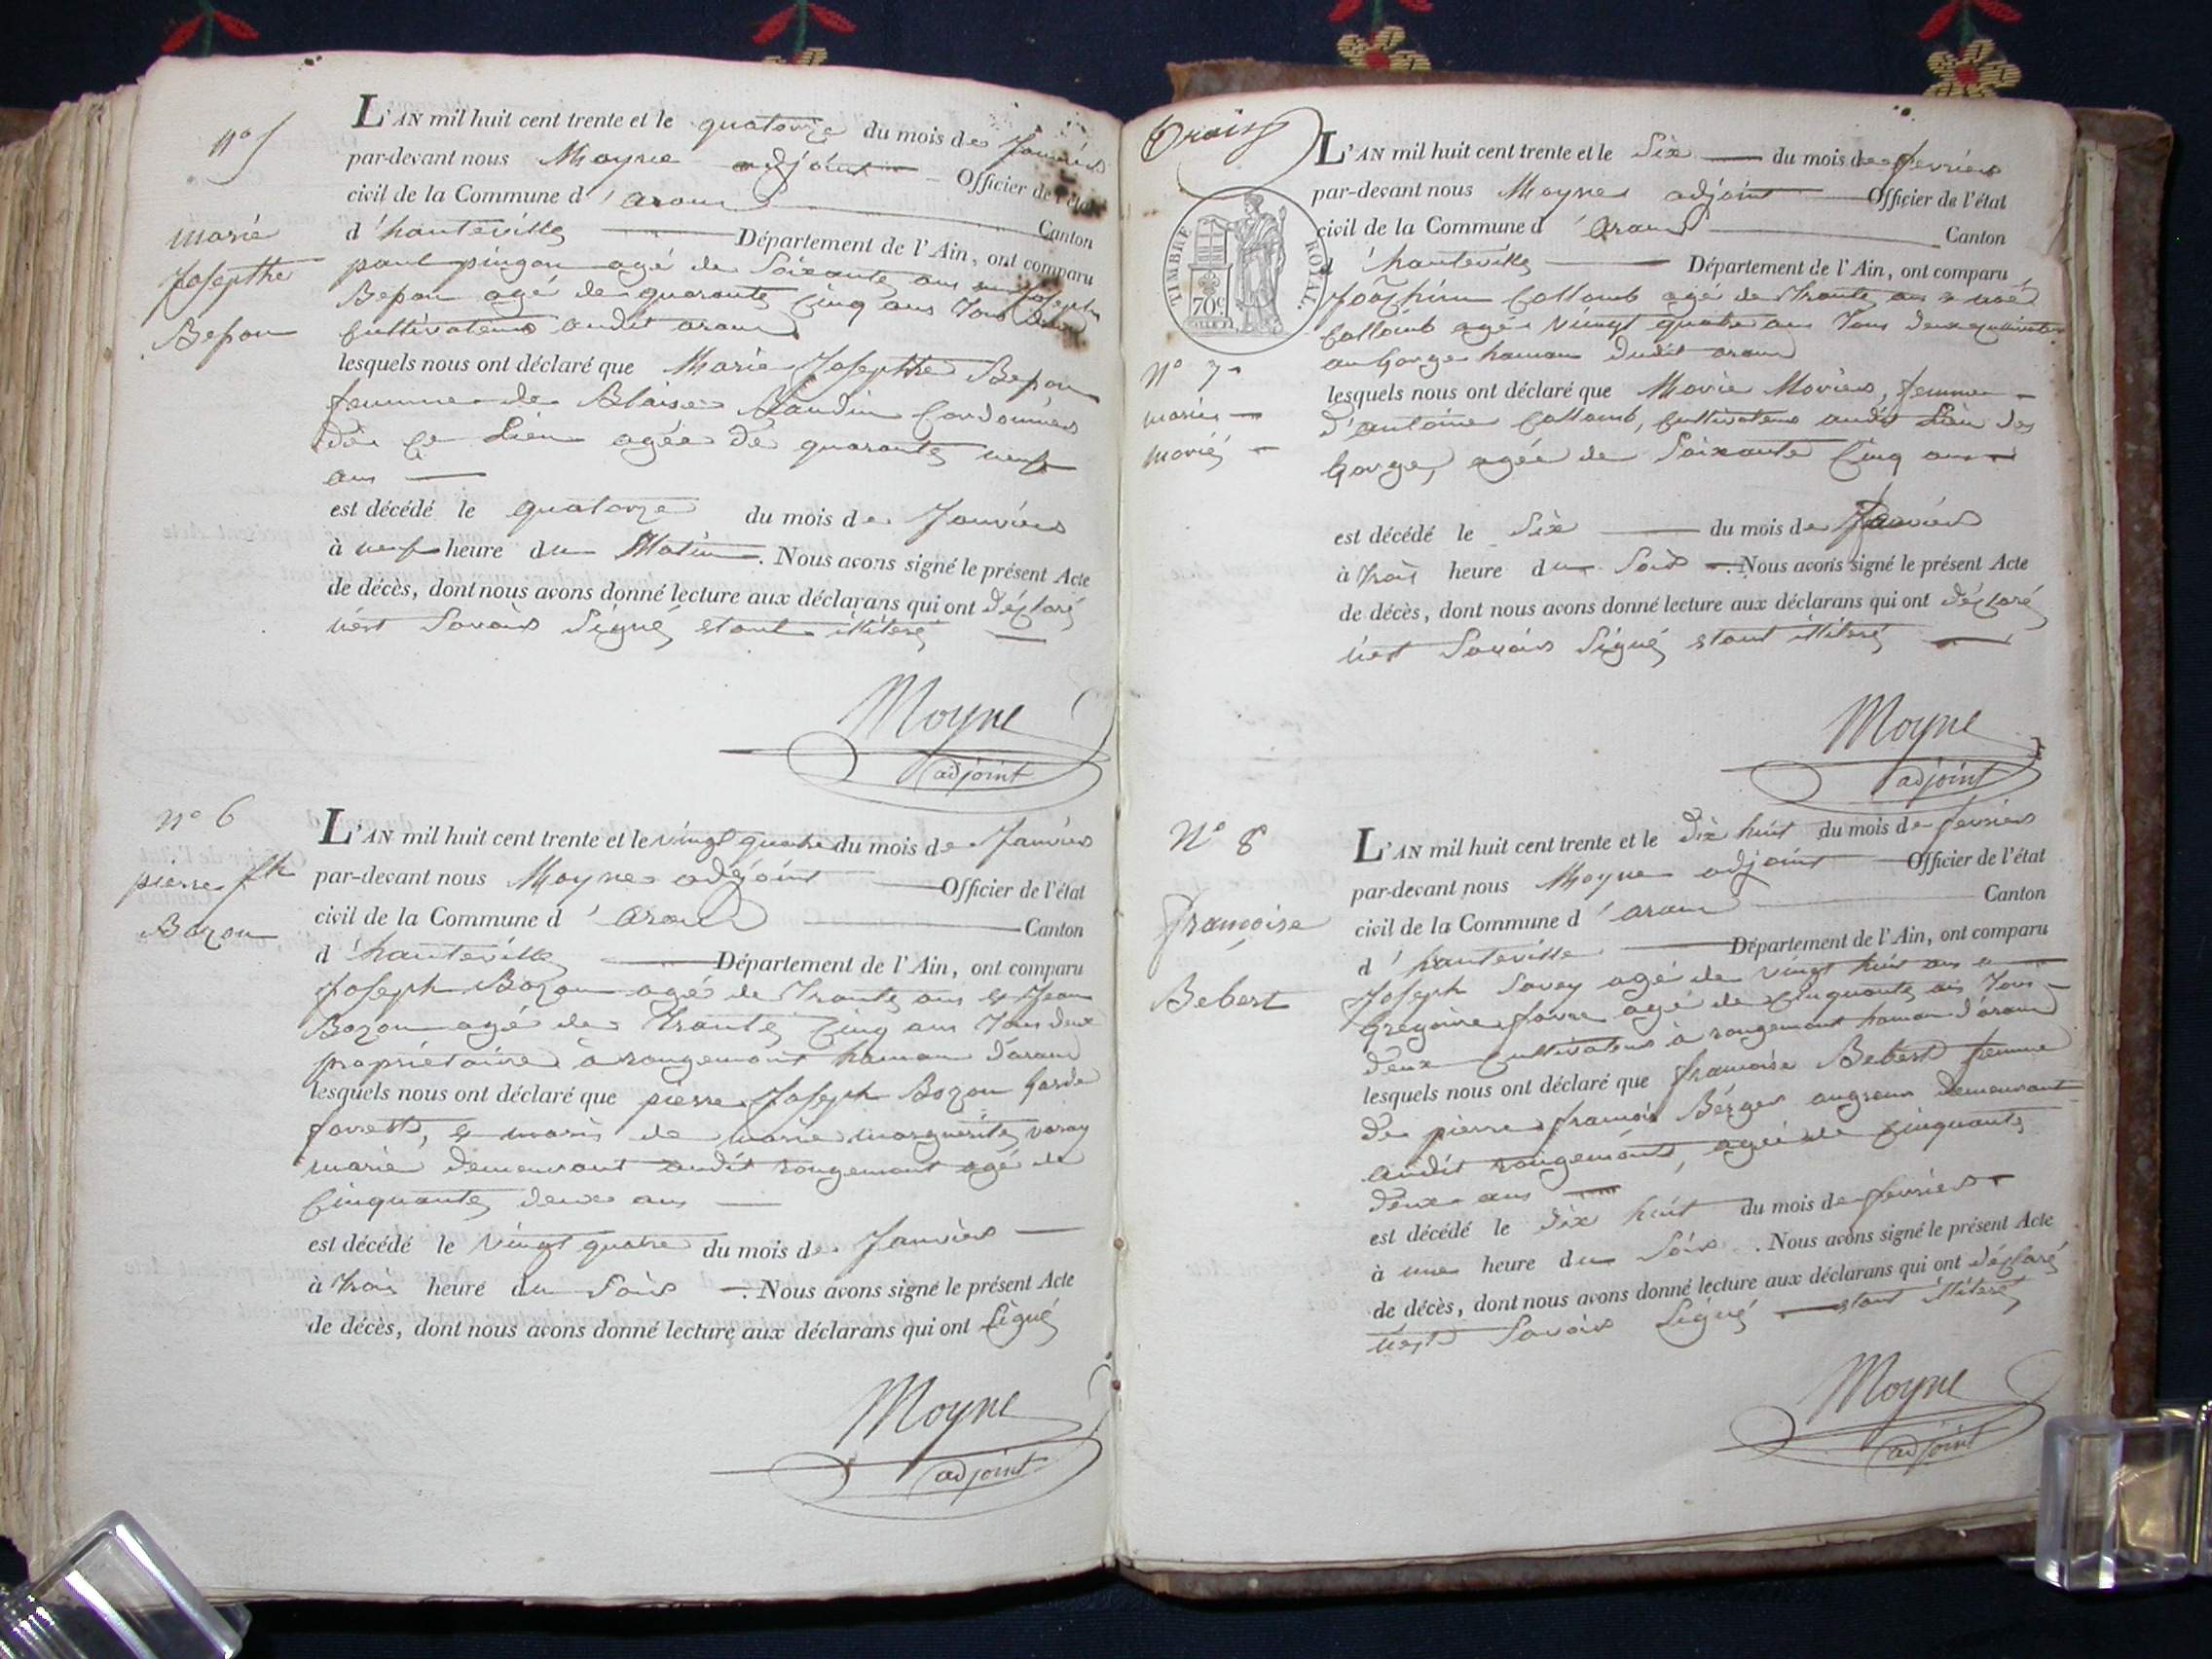 n° 5
Marie
Josephte
Bepon
L'AN mil huit cent trente et le quatorze du mois de Janvier
par-devant nous Moyne adjoint Officier de l'état
civil de la Commune d'aranc Canton
d'hauteville Département de l'Ain, ont comparu
paul pingon agé de Soixante ans et Joseph
Bepon agé de quarante Cinq ans Tous deux
Cultivateurs audit aranc
lesquels nous ont déclaré que Marie Josephte Bepon
femme de Blaise Cordonnier
de ce Lieu agée de quarante neuf
ans
est décédé le quatorze du mois de Janvier
à neuf heure du Matin. Nous avons signé le présent Acte
de décès, dont nous avons donné lecture aux déclarans qui ont déclaré
nest Savoir Signé, etant illiteré
Moyne
adjoint
n° 6
pierre Jh
Bozon
L'AN mil huit cent trente et le vingt quatre du mois de Janvier
par-devant nous Moyne adjoint Officier de l'état
civil de la Commune d'aranc Canton
d'hauteville Département de l'Ain, ont comparu
Joseph Bozon agé de Trante ans et Jean
Bozon agé de Trante Cinq ans Tous deux
propriétaire à rougemont hamau d'aranc
lesquels nous ont déclaré que pierre Joseph Bozon Garde
foret, et maris de marie marguerite varay
marié demeurant audit rougemont agé de
Cinquante deux ans
est décédé le vingt quatre du mois de Janvier
à trois heure du Soir. Nous avons signé le présent Acte
de décès, dont nous avons donné lecture aux déclarans qui ont Signé
Moyne
adjoint
Trois
TIMBRE ROYAL.
70c
N° 7
marie
Morier
L'AN mil huit cent trente et le Six du mois de fevrier
par-devant nous Moyne adjoint Officier de l'état
civil de la Commune d'aranc Canton
d'hauteville Département de l'Ain, ont comparu
Joachim Collomb agé de Trante ans et
Collomb agé vingt quatre ans Tous deux cultivateurs
au Gorge hamau dudit aranc
lesquels nous ont déclaré que Marie Morier, femme
d'antoine Collomb, Cultivateur audit Lieu des
Gorges, agée de Soixante Cinq ans
est décédé le Six du mois de
à trois heure du Soir. Nous avons signé le présent Acte
de décès, dont nous avons donné lecture aux déclarans qui ont déclaré
nest Savoir Signé, etant illiteré
Moyne
adjoint
N° 8
françoise
Bebert
L'AN mil huit cent trente et le dix huit du mois de fevrier
par-devant nous Moyne adjoint Officier de l'état
civil de la Commune d'aranc Canton
d'hauteville Département de l'Ain, ont comparu
Joseph Savey agé de vingt huit ans et
Gregoire favre agé de Cinquante ans Tous
deux Cultivateurs à rougemont hamau d'aranc
lesquels nous ont déclaré que francoise Bebert femme
de pierre françois Berger demeurant
audit rougemont, agée de Cinquante
deux ans
est décédé le dix huit du mois de fevrier
à une heure du Soir. Nous avons signé le présent Acte
de décès, dont nous avons donné lecture aux déclarans qui ont déclaré
nest Savoir Signé etant illiteré
Moyne
adjoint